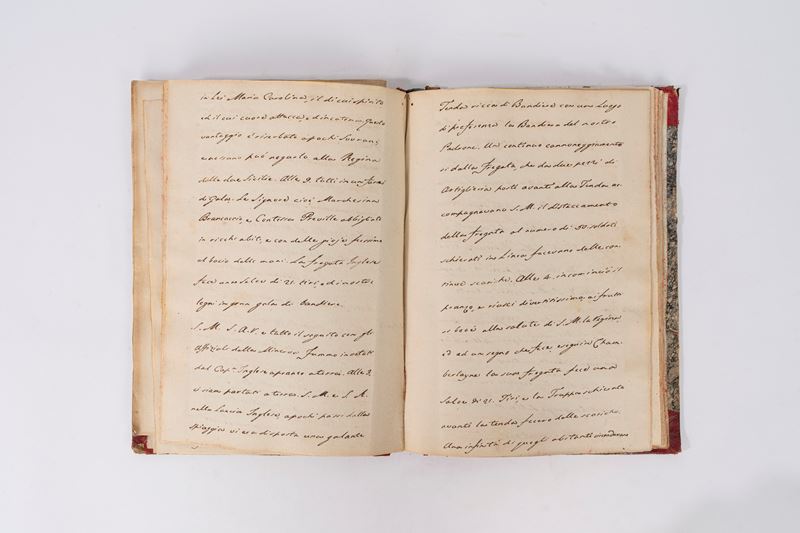 in Lei Maria Carolina, il di cui spirito
ed il cui cuore attacca, ed incatena, questo
vantaggio è riserbato a pochi Sovrani,
e nessuno può negarlo alla Regina
delle due Sicilie. Alle 9. tutti in uniforme
di gala. Le Signore cioè Marchesina
Brancaccio, e Contessa Preville abbigliate
in ricchi abiti, e con delle gioje furono
al bacio delle mani. La fregata Inglese
fece una Salva di 21. tiri, ed i nostri
legni in gran gala di bandiere.
S. M. S. A. R. e tutto il seguito con gli
Offiziali della Minerva fummo invitati
dal Cap.º Inglese a pranzo a terra. Alle 3.
ci siam portati a terra. S. M. e S. A.
nella Lancia Inglese, a pochi passi dalla
Spiaggia vi era disposta una galante
Tenda ricca di Bandiere con un Luogo
di preferenza la Bandiera del nostro
Padrone. Un continuo cannoneggiamento
sì dalla fregata, che da due pezzi di
Artiglieria posti avanti alla Tenda ac
compagnavano S. M. il distaccamento
della fregata al numero di 50 soldati
schierati in Linea facevano delle con
tinue scariche. Alle 4. incominciò il
pranzo, e riuscì divertitissimo, ai frutti
se bevè alla salute di S. M. la Regina,
ed ad un segno che fece, eseguì Cham
berlayne la sua fregata fece una
Salva di 21. Tiri, e la Truppa schierata
avanti la tenda fecero delle scariche.
Una infinità di quegli abitanti